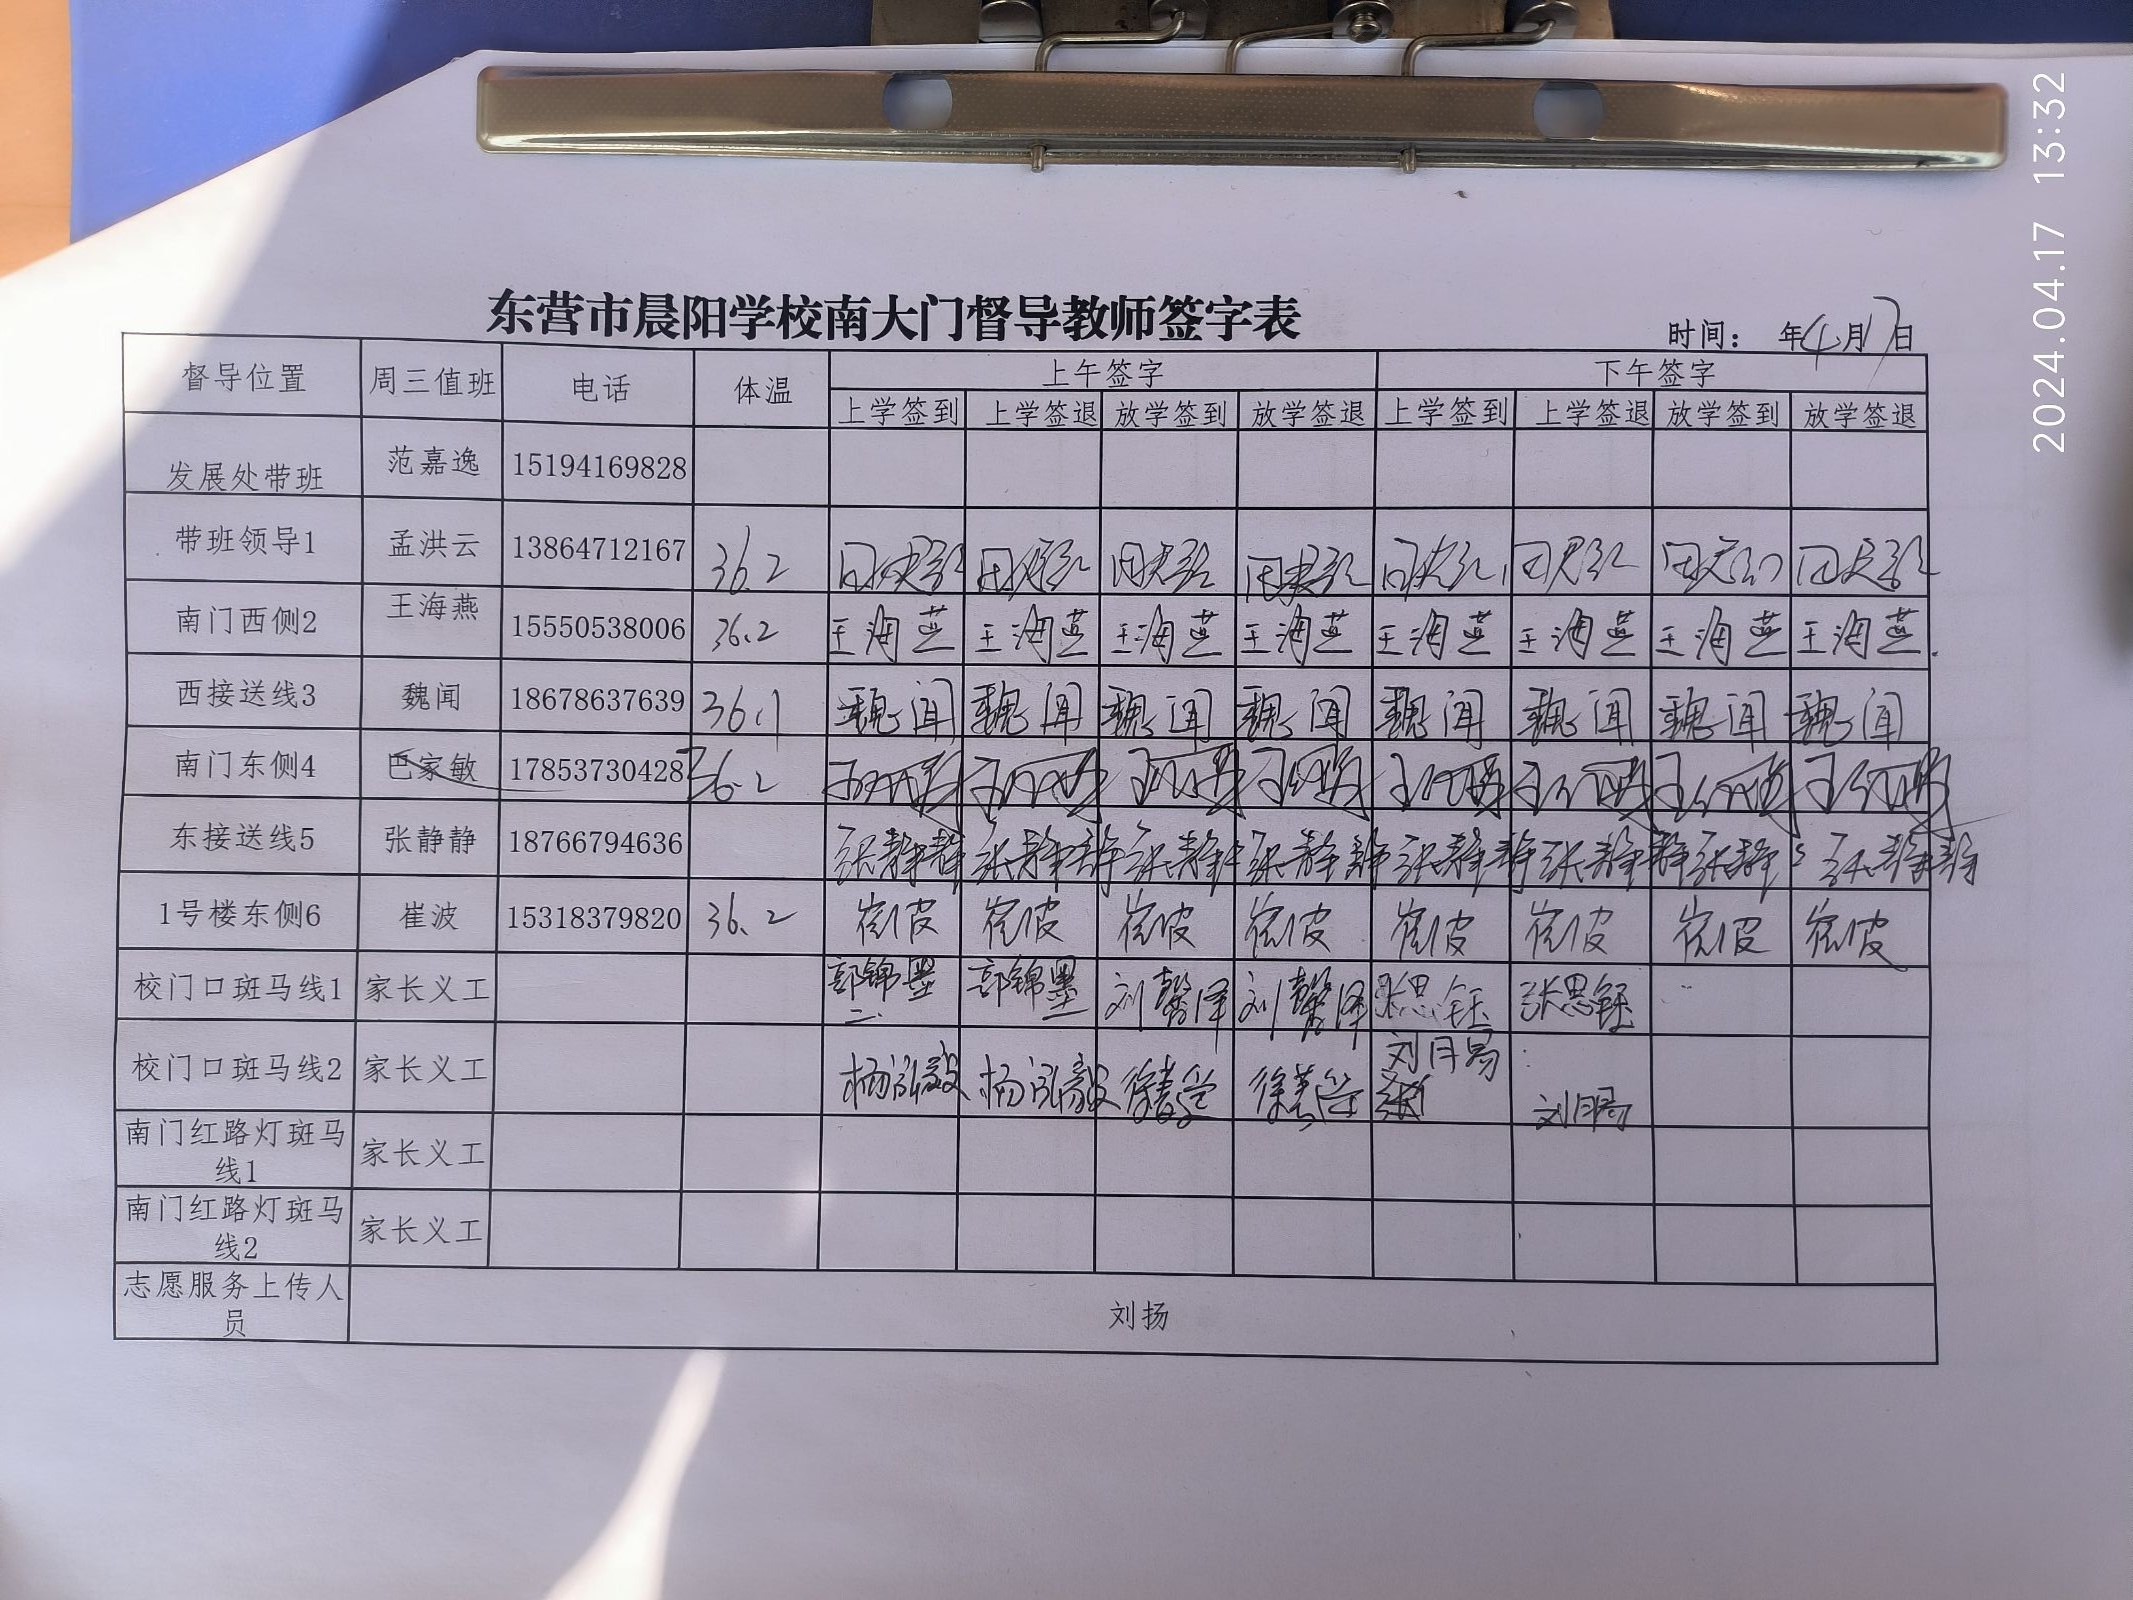 2024.04.17 13:32
东营市晨阳学校南大门督导教师签字表
时间： 年4月17日
督导位置 周三值班 电话 体温 上午签字 下午签字
上学签到 上学签退 放学签到 放学签退 上学签到 上学签退 放学签到 放学签退
发展处带班 范嘉逸 15194169828
带班领导1 孟洪云 13864712167 36.2
南门西侧2 王海燕 15550538006 36.2 王海燕 王海燕 王海燕 王海燕 王海燕 王海燕 王海燕 王海燕
西接送线3 魏闻 18678637639 36.1 魏闻 魏闻 魏闻 魏闻 魏闻 魏闻 魏闻 魏闻
南门东侧4 巴家敏 17853730428 36.2
东接送线5 张静静 18766794636 张静静 张静静 张静 张静静 张静静 张静静 张静 张静静
1号楼东侧6 崔波 15318379820 36.2 崔波 崔波 崔波 崔波 崔波 崔波 崔波 崔波
校门口斑马线1 家长义工 郭锦墨 郭锦墨 刘馨泽 刘馨泽 张思钰 张思钰
校门口斑马线2 家长义工 杨泓毅 杨泓毅 刘月易
南门红路灯斑马线1 家长义工
南门红路灯斑马线2 家长义工
志愿服务上传人员 刘扬